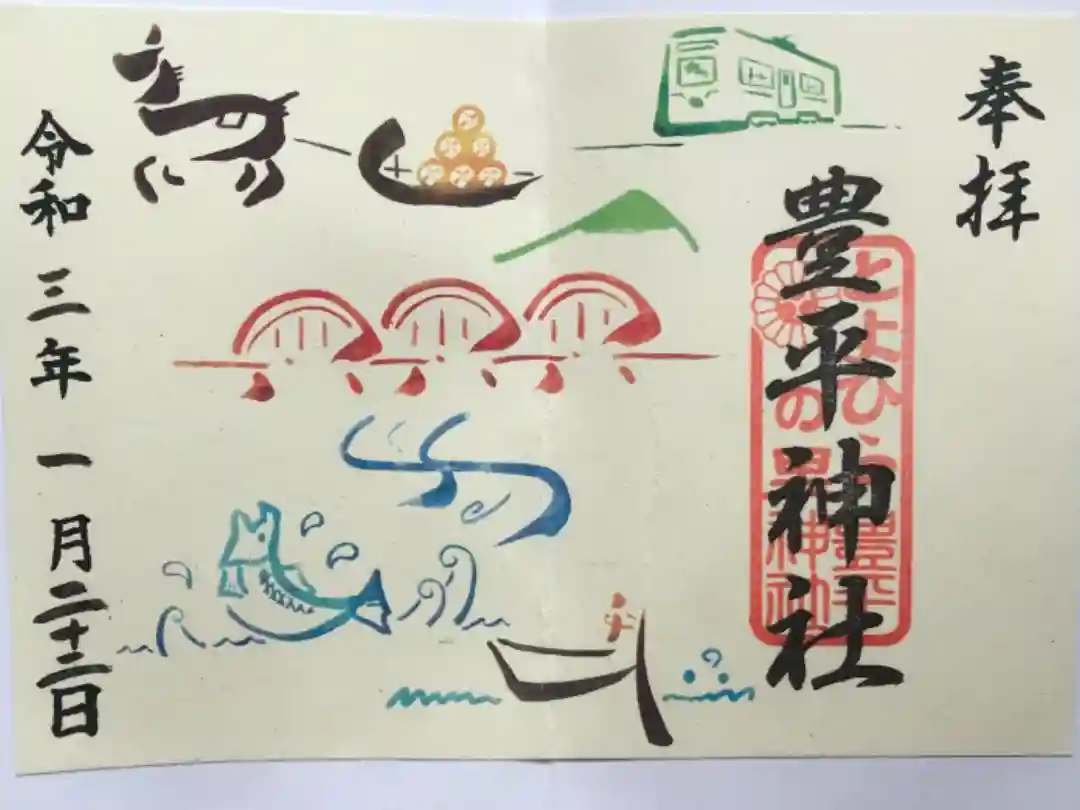 奉拝
豊平神社
とよひらの里
豊平神社
令和三年一月二十三日